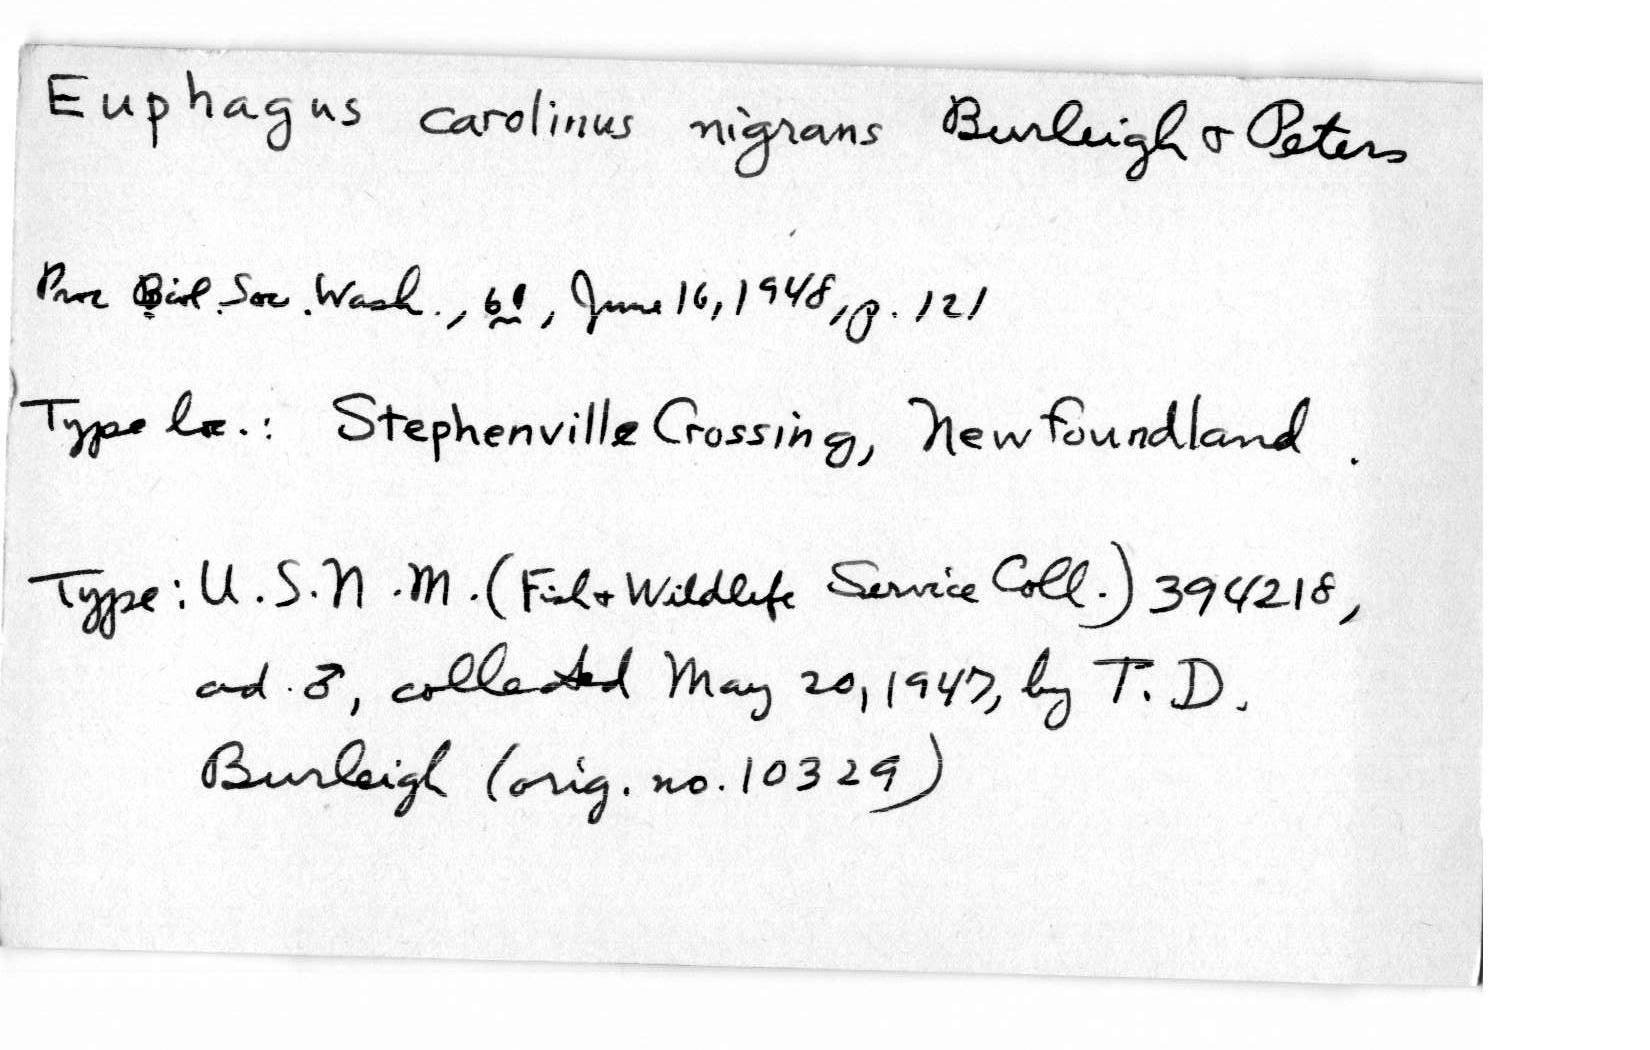 Euphagus carolinus nigrans Burleigh & Peters
Proc Biol. Soc. Wash., 61, June 16, 1948, p. 121
Type loc.: Stephenville Crossing, Newfoundland.
Type: U.S.N.M. (Fish & Wildlife Service Coll.) 394218,
ad. ♂, collected May 20, 1947, by T. D.
Burleigh (orig. no. 10329)